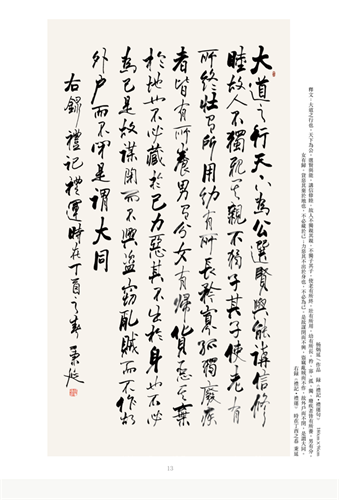 大道之行天下為公選賢與能講信修
睦故人不獨親其親不獨子其子使老有
所終壯有所用幼有所長矜寡孤獨廢疾
者皆有所養男有分女有歸貨惡其棄
於地也不必藏於己力惡其不出於身也不必
為己是故謀閉而不興盜竊亂賊而不作故
外户而不閉是謂大同
右錄禮記禮運時在丁酉之春 延
作品 錄《禮記·禮運句》
釋文：大道之行也，天下為公，選賢與能，講信修睦，故人不獨親其親，不獨子其子，使老有所終，壯有所用，幼有所長，矜、寡、孤、獨、廢疾者皆有所養，男有分，
女有歸，貨惡其棄於地也，不必藏於己，力惡其不出於身也，不必為己，是故謀閉而不興，盜竊亂賊而不作，故外戶而不閉，是謂大同。
右錄《禮記·禮運》 時在丁酉之春
13